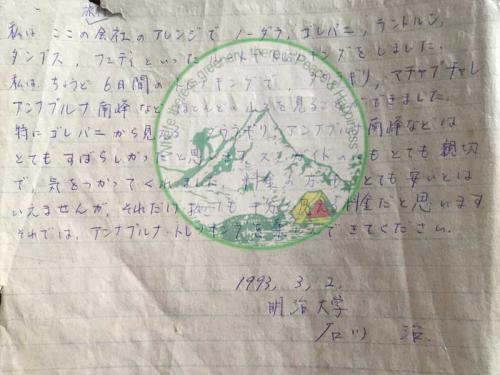 私は ここの会社のアレンジで ノーダラ, ゴレパニ, ランドルン,
ダンプス, フェディといった キングをしました.
私は ちょうど 6日間の キングで, ギリ, マチャプチャレ
アンナプルナ南峰など ほとんどの 山を見る できました.
特に ゴレパニから見 ダウラギリ, アンナプルナ南峰などは
とても すばらしかったと思います. ガイドの も とても 親切
で, 気をつかってくれました. 料金の方 とても 安いとは
いえませんが, それだけ 払っても 十分 料金だと思います
それでは, アンナプルナ・トレッキングを楽しんできてください.
Where there is greenery, there is Peace & Happiness
1993, 3, 2.
明治大学
石川 治.